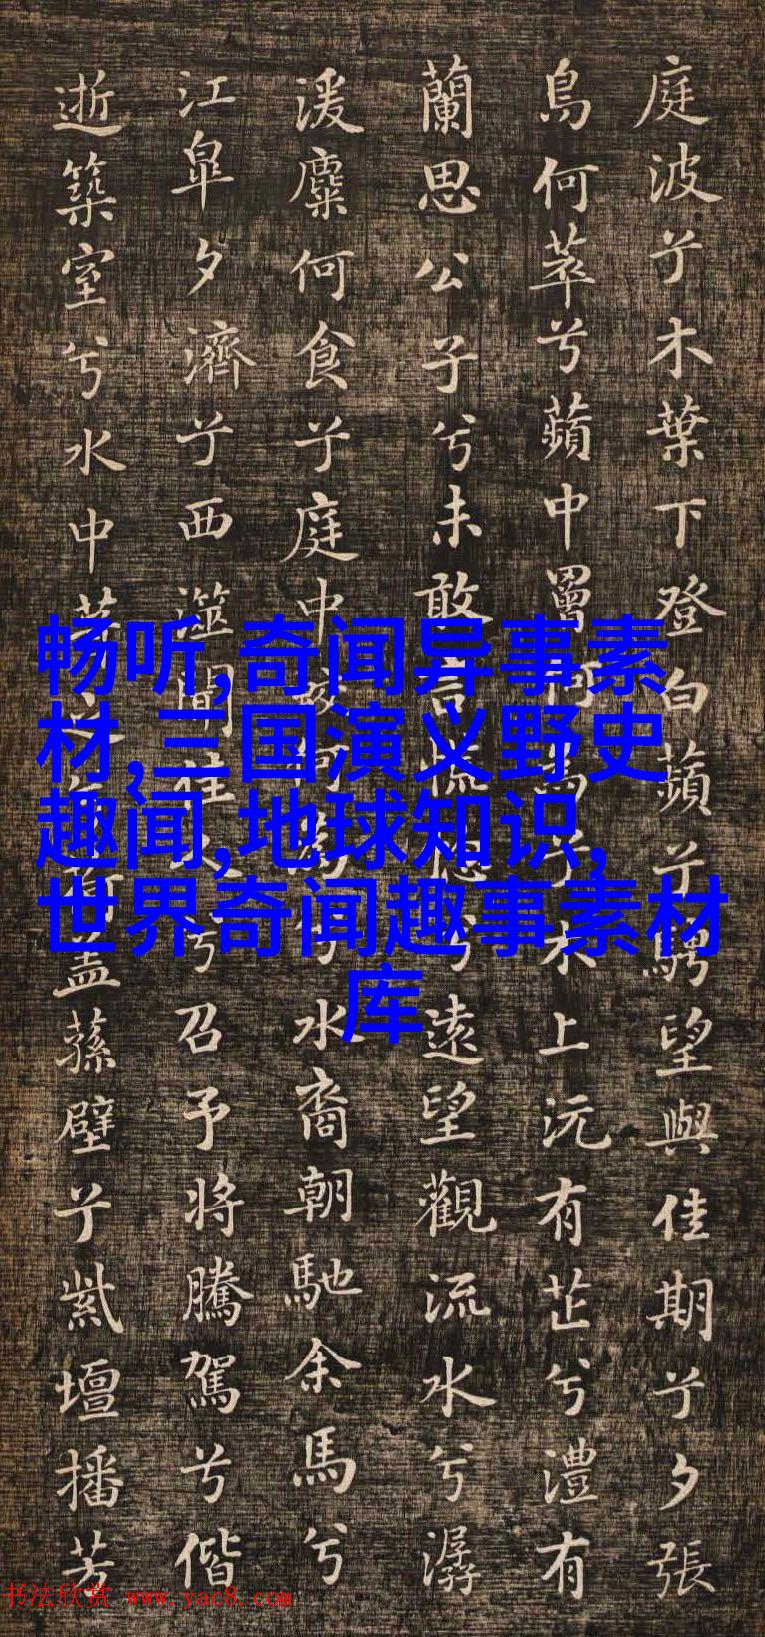 庭波兮木葉下登白蘋兮騁望與佳期兮夕張
鳥何萃兮蘋中罾何為兮木上沅有芷兮澧有
蘭思公子兮未敢言慌惚兮遠望觀流水兮潺
湲麋何食兮庭中蛟何為兮水裔朝馳余馬兮
江皐夕濟兮西澨聞佳兮召予將騰駕兮偕
逝築室兮水中葺之蓋蓀壁兮紫壇播芳
畅听,奇闻异事素
材,三国演义野史
趣闻,地球知识,
世界奇闻趣事素材
库
书法欣赏 www.yac8.com